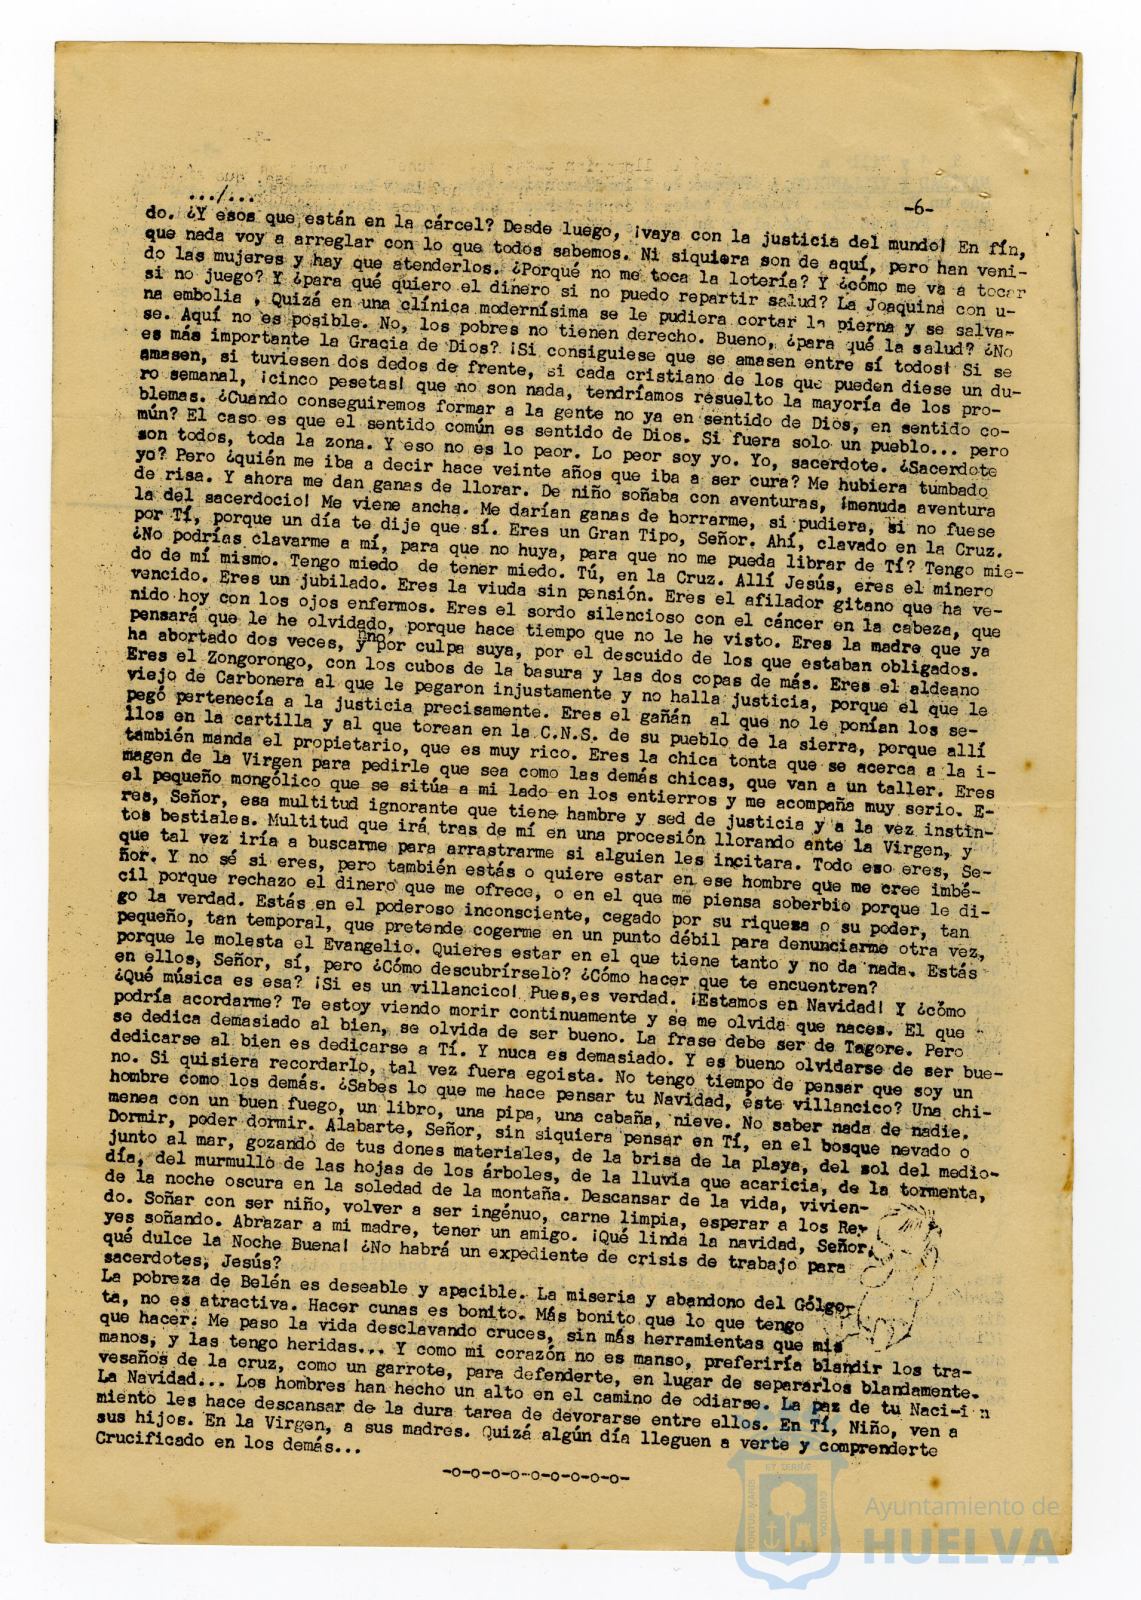 .../...
-6-
do. ¿Y esos que están en la cárcel? Desde luego, ¡vaya con la justicia del mundo! En fín,
que nada voy a arreglar con lo que todos sabemos. Ni siquiera son de aquí, pero han veni-
do las mujeres y hay que atenderlos. ¿Porqué no me toca la lotería? Y ¿cómo me va a tocar
si no juego? Y ¿para qué quiero el dinero si no puedo repartir salud? La Joaquina con u-
na embolia , Quizá en una clínica modernísima se le pudiera cortar la pierna y se salva-
se. Aquí no es posible. No, los pobres no tienen derecho. Bueno, ¿para qué la salud? ¿No
es más importante la Gracia de Dios? ¡Si consiguiese que se amasen entre sí todos! Si se
amasen, si tuviesen dos dedos de frente, si cada cristiano de los que pueden diese un du-
ro semanal, ¡cinco pesetas! que no son nada, tendríamos resuelto la mayoría de los pro-
blemas. ¿Cuándo conseguiremos formar a la gente no ya en sentido de Dios, en sentido co-
mún? El caso es que el sentido común es sentido de Dios. Si fuera solo un pueblo... pero
son todos, toda la zona. Y eso no es lo peor. Lo peor soy yo. Yo, sacerdote. ¿Sacerdote
yo? Pero ¿quién me iba a decir hace veinte años que iba a ser cura? Me hubiera tumbado
de risa. Y ahora me dan ganas de llorar. De niño soñaba con aventuras, ¡menuda aventura
la del sacerdocio! Me viene ancha. Me darían ganas de borrarme, si pudiera, si no fuese
por Tí, porque un día te dije que sí. Eres un Gran Tipo, Señor. Ahí, clavado en la Cruz.
¿No podrías clavarme a mí, para que no huya, para que no me pueda librar de Tí? Tengo mie-
do de mí mismo. Tengo miedo de tener miedo. Tú, en la Cruz. Allí Jesús, eres el minero
vencido. Eres un jubilado. Eres la viuda sin pensión. Eres el afilador gitano que ha ve-
nido hoy con los ojos enfermos. Eres el sordo silencioso con el cáncer en la cabeza, que
pensará que le he olvidado, porque hace tiempo que no le he visto. Eres la madre que ya
ha abortado dos veces, y no por culpa suya, por el descuido de los que estaban obligados.
Eres el Zongorongo, con los cubos de la basura y las dos copas de más. Eres el aldeano
viejo de Carbonera al que le pegaron injustamente y no halla justicia, porque el que le
pegó pertenecía a la justicia precisamente. Eres el gañán al que no le ponían los se-
llos en la cartilla y al que torean en la C.N.S. de su pueblo de la sierra, porque allí
también manda el propietario, que es muy rico. Eres la chica tonta que se acerca a la i-
magen de la Virgen para pedirle que sea como las demás chicas, que van a un taller. Eres
el pequeño mongólico que se sitúa a mi lado en los entierros y me acompaña muy serio. E-
res, Señor, esa multitud ignorante que tiene hambre y sed de justicia y a la vez instin-
tos bestiales. Multitud que irá tras de mí en una procesión llorando ante la Virgen, y
que tal vez iría a buscarme para arrastrarme si alguien les incitara. Todo eso eres, Se-
ñor. Y no sé si eres, pero también estás o quiere estar en ese hombre que me cree imbé-
cil porque rechazo el dinero que me ofrece, o en el que me piensa soberbio porque le di-
go la verdad. Estás en el poderoso inconsciente, cegado por su riqueza o su poder, tan
pequeño, tan temporal, que pretende cogerme en un punto débil para denunciarme otra vez,
porque le molesta el Evangelio. Quieres estar en el que tiene tanto y no da nada. Estás
en ellos, Señor, sí, pero ¿Cómo descubrírselo? ¿Cómo hacer que te encuentren?
¿Qué música es esa? ¡Si es un villancico! Pues,es verdad. ¡Estamos en Navidad! Y ¿cómo
podría acordarme? Te estoy viendo morir continuamente y se me olvida que naces. El que
se dedica demasiado al bien, se olvida de ser bueno. La frase debe ser de Tagore. Pero
dedicarse al bien es dedicarse a Tí. Y nuca es demasiado. Y es bueno olvidarse de ser bue-
no. Si quisiera recordarlo, tal vez fuera egoista. No tengo tiempo de pensar que soy un
hombre como los demás. ¿Sabes lo que me hace pensar tu Navidad, éste villancico? Una chi-
menea con un buen fuego, un libro, una pipa, una cabaña, nieve. No saber nada de nadie.
Dormir, poder dormir. Alabarte, Señor, sin siquiera pensar en Tí, en el bosque nevado o
junto al mar, gozando de tus dones materiales, de la brisa de la playa, del sol del medio-
día, del murmullo de las hojas de los árboles, de la lluvia que acaricia, de la tormenta,
de la noche oscura en la soledad de la montaña. Descansar de la vida, vivien-
do. Soñar con ser niño, volver a ser ingénuo, carne limpia, esperar a los Re-
yes soñando. Abrazar a mi madre, tener un amigo. ¡Qué linda la navidad, Señor,
qué dulce la Noche Buena! ¿No habrá un expediente de crisis de trabajo para
sacerdotes, Jesús?
La pobreza de Belén es deseable y apacible. La miseria y abandono del Gólgo-
ta, no es atractiva. Hacer cunas es bonito. Más bonito que lo que tengo
que hacer. Me paso la vida desclavando cruces, sin más herramientas que mis
manos, y las tengo heridas... Y como mi corazón no es manso, preferiría blandir los tra-
vesaños de la cruz, como un garrote, para defenderte, en lugar de separarlos blandamente.
La Navidad... Los hombres han hecho un alto en el camino de odiarse. La paz de tu Naci-i n
miento les hace descansar de la dura tarea de devorarse entre ellos. En Tí, Niño, ven a
sus hijos. En la Virgen, a sus madres. Quizá algún día lleguen a verte y comprenderte
Crucificado en los demás...
-o-o-o-o-o-o-o-o-o-
PORTUS MARIS ET TERRÆ CUSTODIA
Ayuntamiento de
HUELVA